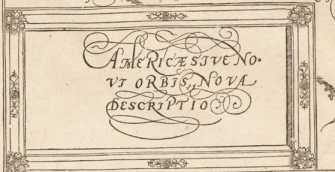 AMERICÆ SIVE NO-
VI ORBIS, NOVA
DESCRIPTIO